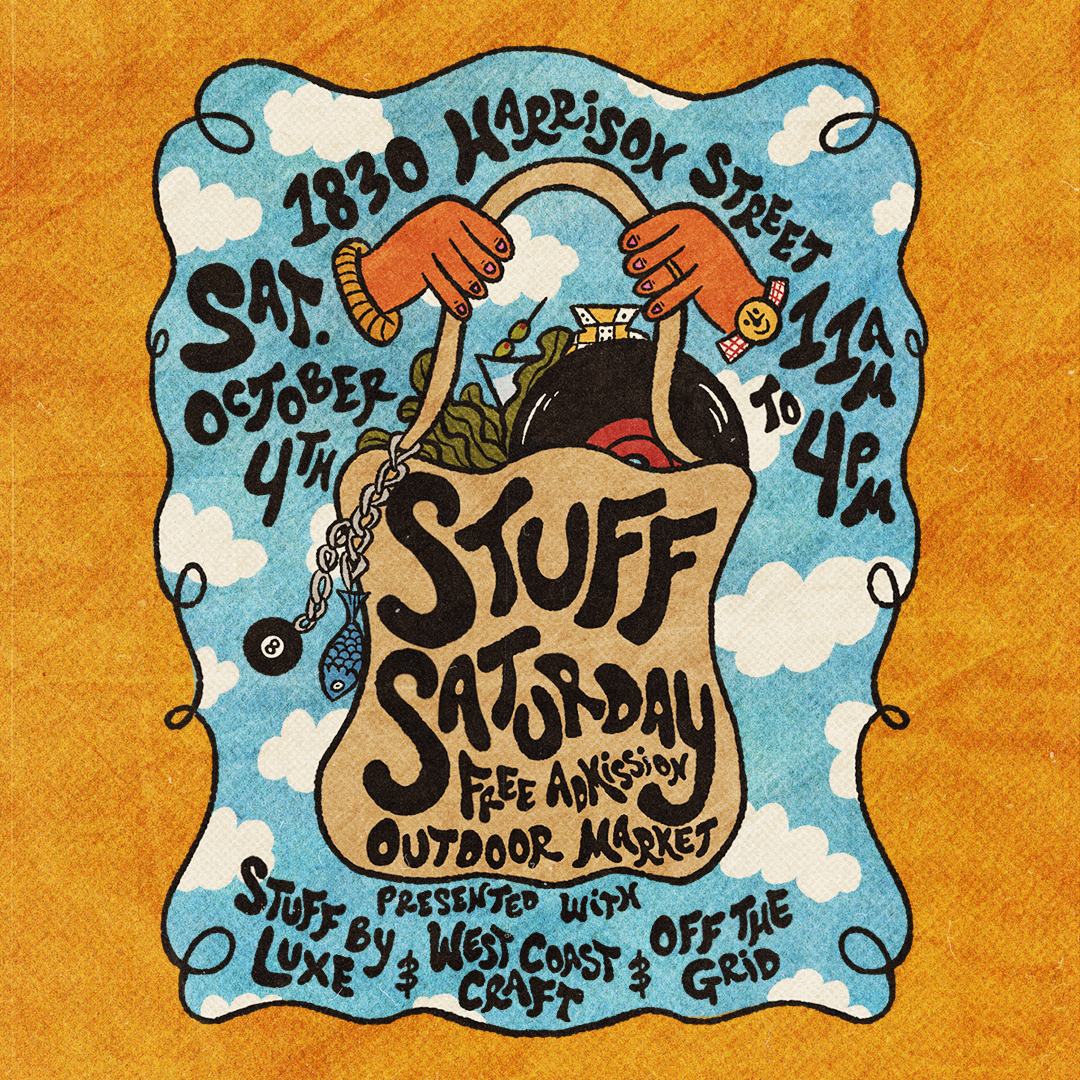 1830 HARRISON STREET
SAT.
OCTOBER
4TH
11AM
TO
4PM
STUFF
SATURDAY
FREE ADMISSION
OUTDOOR MARKET
8
PRESENTED WITH
STUFF BY
LUXE
$
WEST COAST
CRAFT
$
OFF THE
GRID